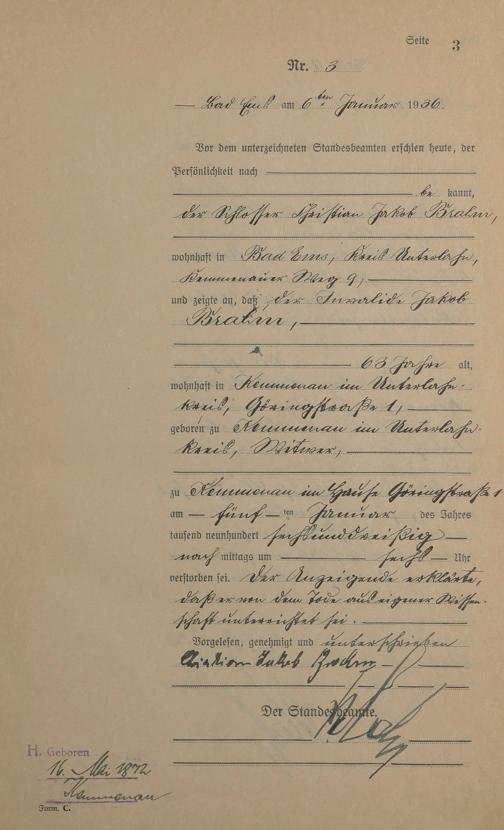 Seite 3
Nr. 3
Bad Ems am 6ten Januar 1936.
Vor dem unterzeichneten Standesbeamten erschien heute, der
Persönlichkeit nach
be kannt,
der Schlosser Christian Jakob
wohnhaft in Bad Ems, Kreis Unterlahn,
Kemmenauer Weg 9,
und zeigte an, daß der Invalide Jakob
63 Jahre alt,
wohnhaft in Kemmenau im Unterlahn-
kreis, Göringstraße 1,
geboren zu Kemmenau im Unterlahn-
kreis, Witwer,
zu Kemmenau im Hause Göringstraße 1
am fünf ten Januar des Jahres
tausend neunhundert sechsunddreißig
nach mittags um sechs Uhr
verstorben sei. Der Anzeigende erklärte,
daß er von dem Tode aus eigener Wissen-
schaft unterrichtet sei.
Vorgelesen, genehmigt und unterschrieben
Jakob
Der Standesbeamte.
H. Geboren
16. Mai 1872
Kemmenau
Form. C.